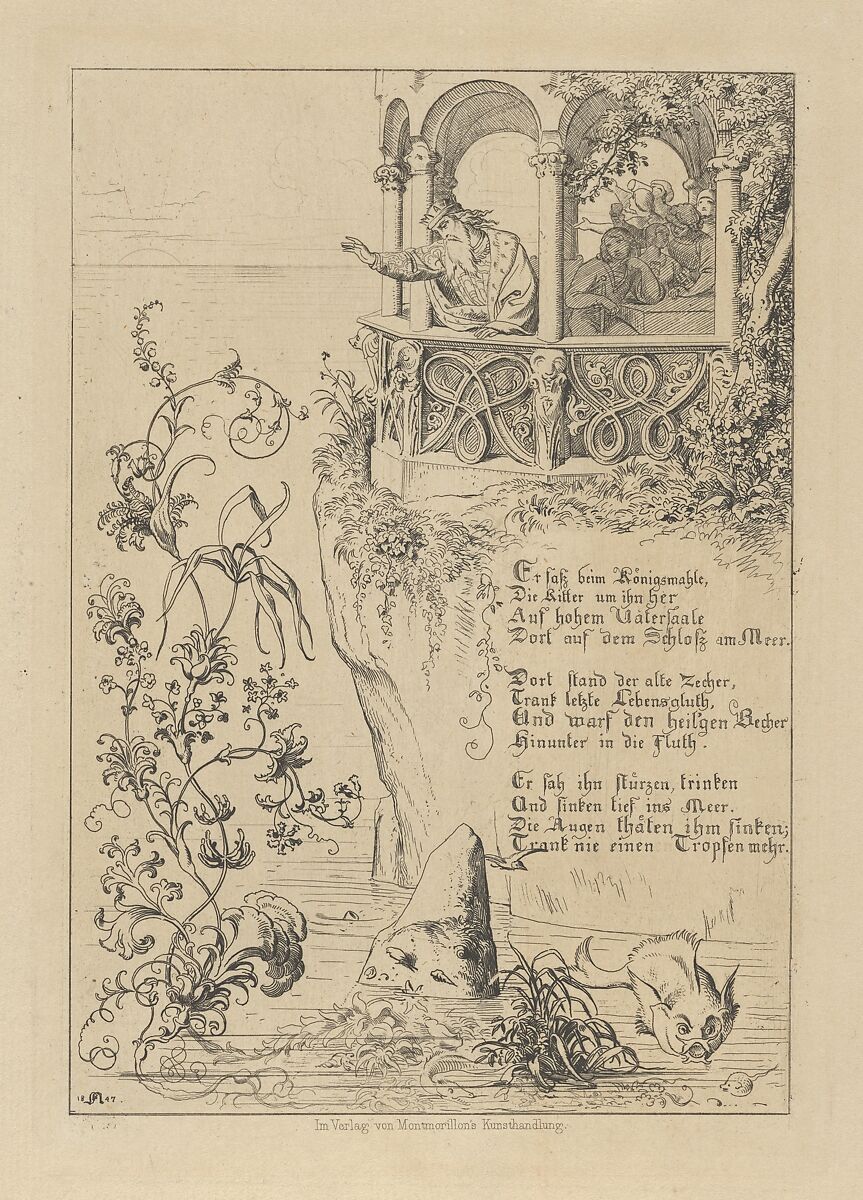 Er saß beim Königsmahle,
Die Ritter um ihn her
Auf hohem Vätersaale
Dort auf dem Schloß am Meer.
Dort stand der alte Zecher,
Trank letzte Lebensgluth,
Und warf den heil'gen Becher
Hinunter in die Fluth.
Er sah ihn stürzen, trinken
Und sinken tief ins Meer.
Die Augen thäten ihm sinken;
Trank nie einen Tropfen mehr.
18 47.
Im Verlag von Montmorillon's Kunsthandlung.